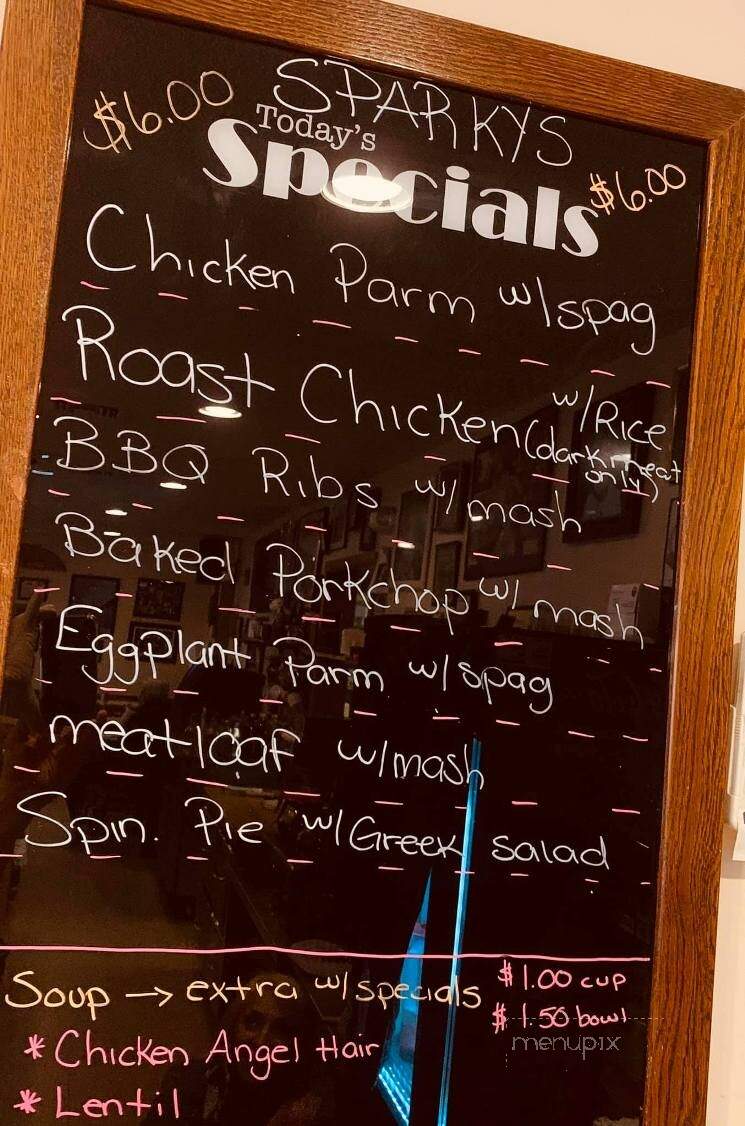 $6.00 SPARKYS
Today's
Specials $6.00
Chicken Parm w/spag
Roast Chicken w/Rice
(dark meat
only)
BBQ Ribs w/ mash
Baked Porkchop w/ mash
Eggplant Parm w/spag
meatloaf w/mash
Spin. Pie w/Greek salad
Soup → extra w/specials $1.00 cup
$1.50 bowl
menupix
* Chicken Angel Hair
* Lentil